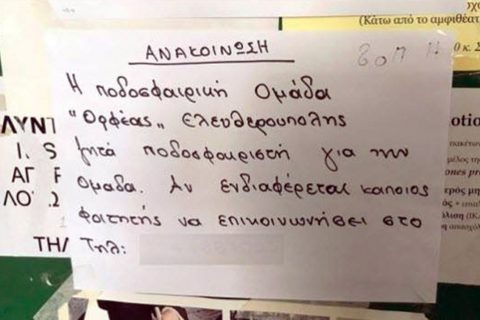 (Κάτω από το αμφιθέατ
ΑΝΑΚΟΙΝΩΣΗ
Η ποδοσφαιρική Ομάδα
"Ορφέας" Ελευθερουπολης
ζητά ποδοσφαιριστή για την
ομαδα. Αν ενδιαφέρεται καποιος
φοιτητής να επικοινωνήσει στο
Τηλ:
ΛΥΝΤ
Ι. S
ΑΓ Ρ
ΛΟ Ω
ΤΗΛ
0 κ. Σ
otio